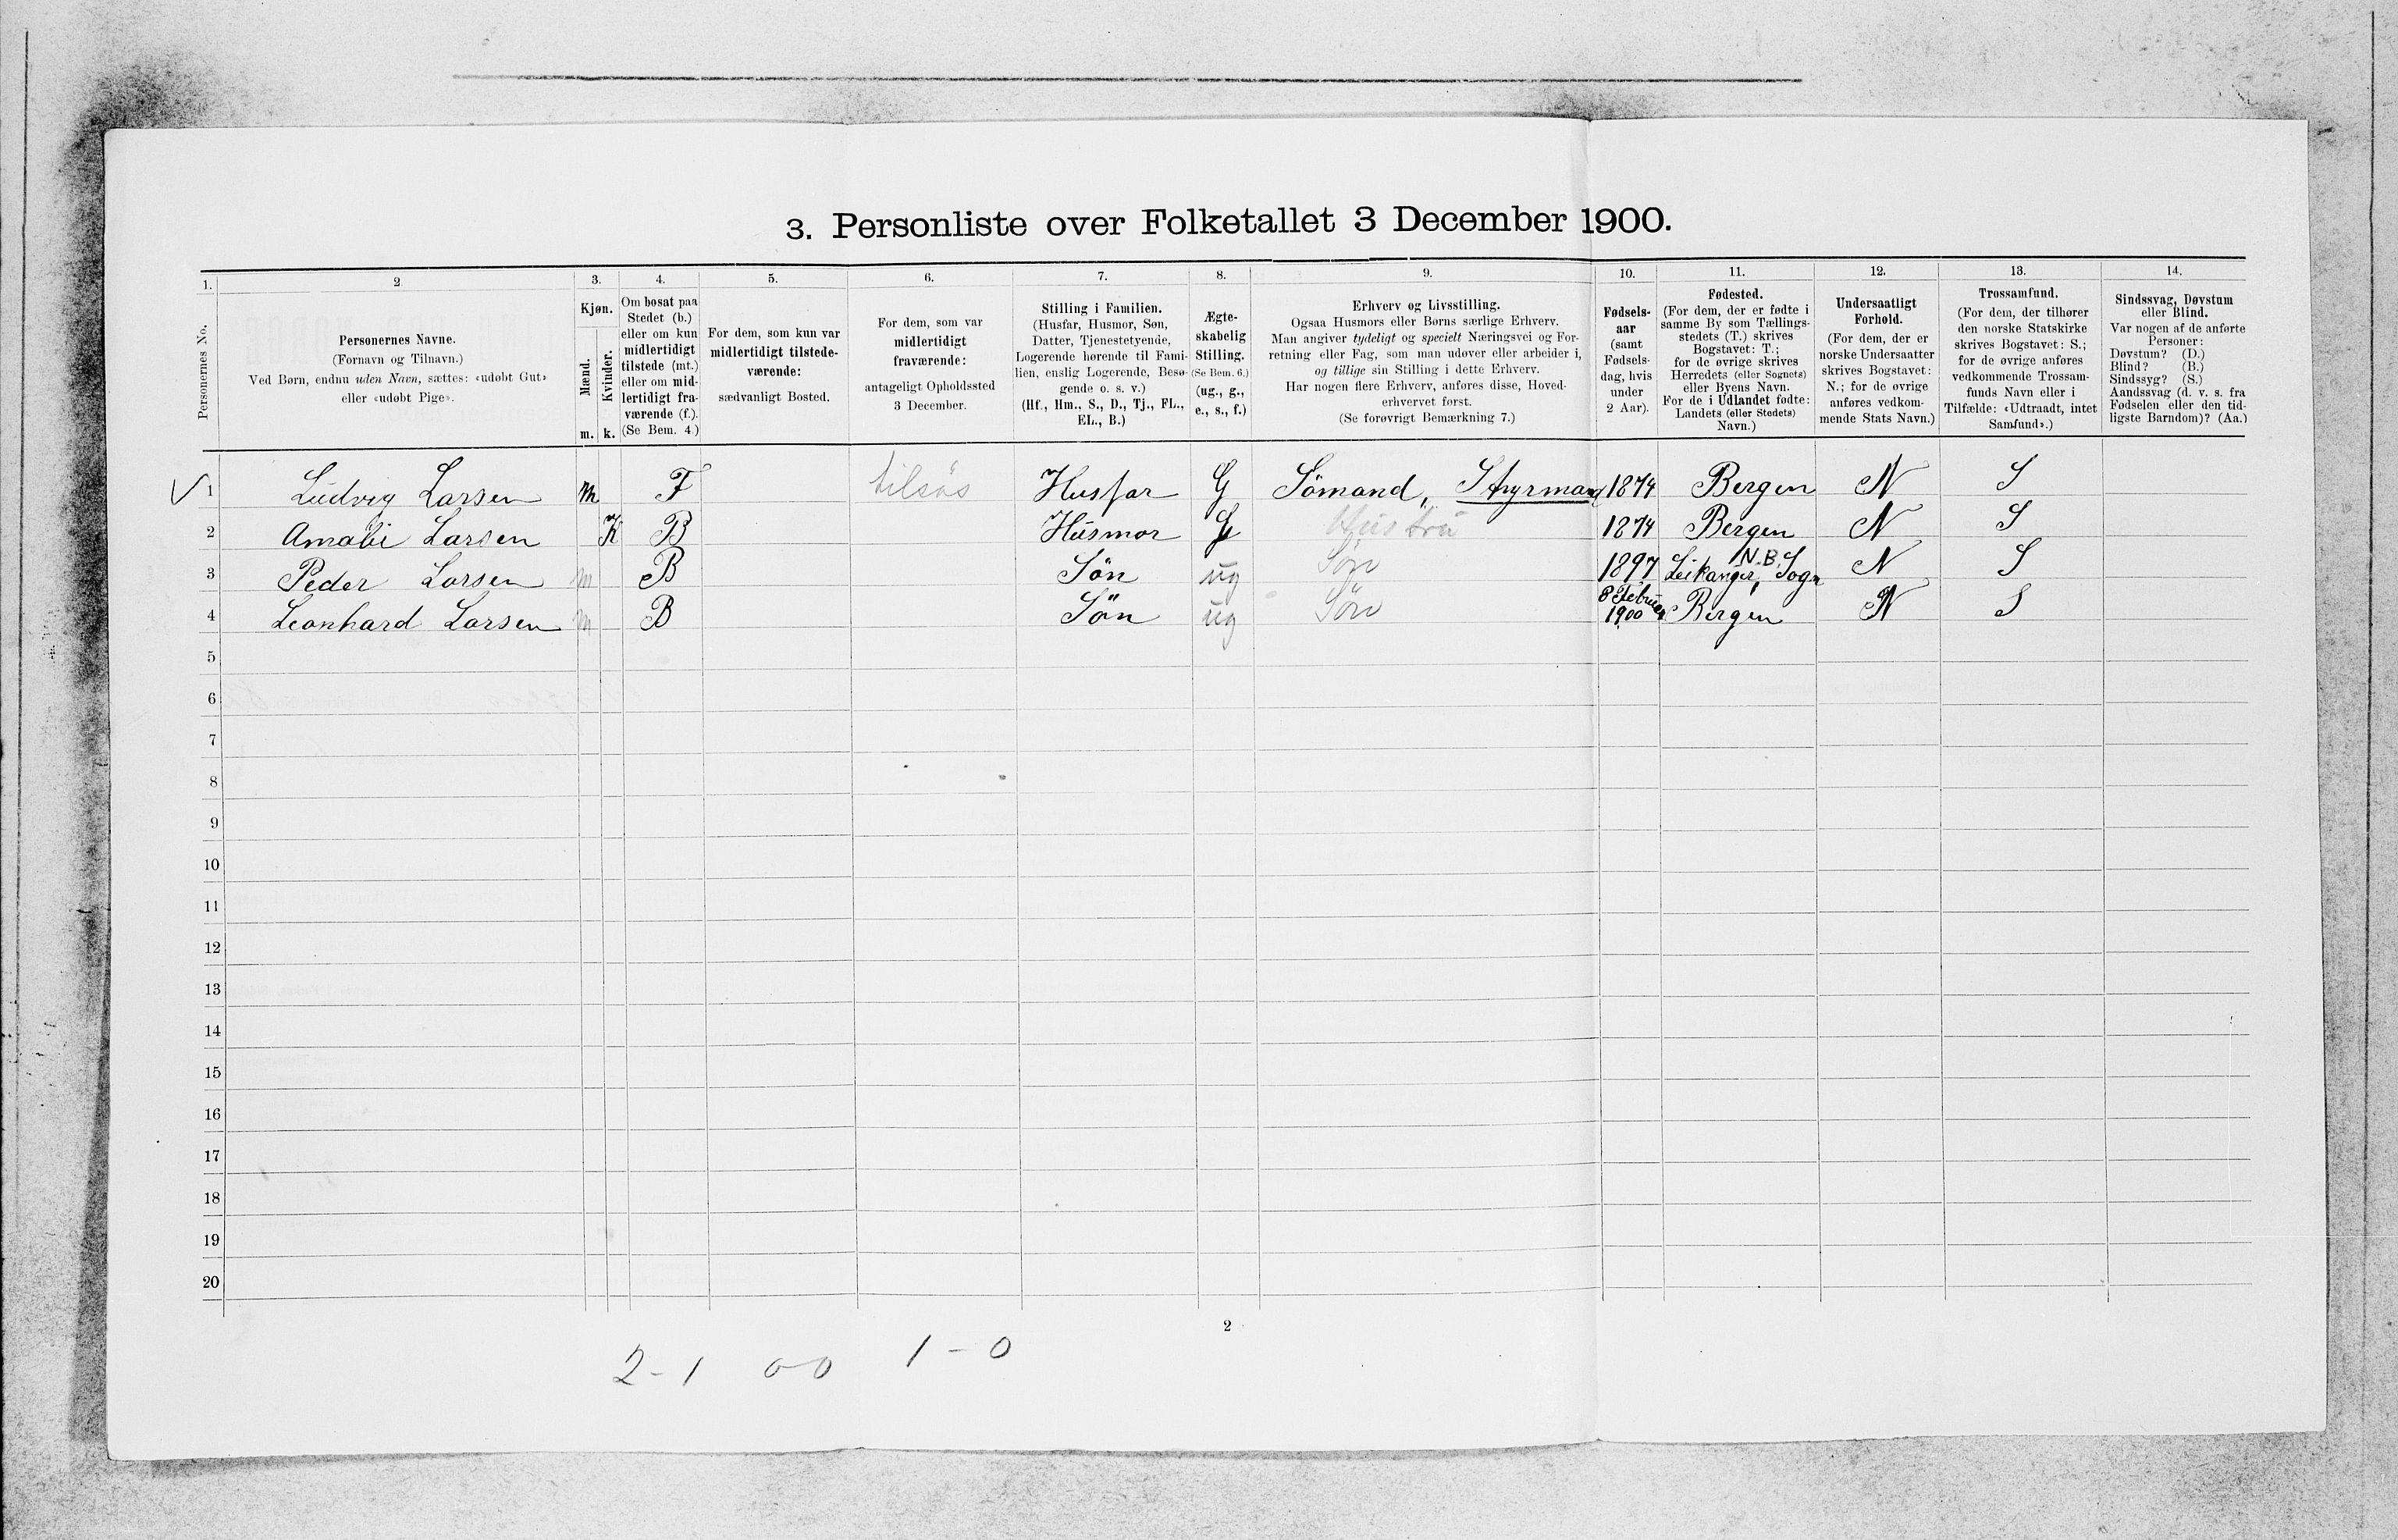 3. Personliste over Folketallet 3 December 1900.
1. 2 3. 4. 5. 6. 7. 8. 9. 10. 11. 12. 13. 14.
Personernes No.
Personernes Navne.
(Fornavn og Tilnavn.)
Ved Børn, endnu uden Navn, sættes: «udøbt Gut»
eller «udøbt Pige».
Kjøn.
Mænd.
Kvinder.
m. k.
Om bosat paa
Stedet (b.)
eller om kun
midlertidigt
tilstede (mt.)
eller om mid-
lertidigt fra-
værende (f.).
(Se Bem. 4.)
For dem, som kun var
midlertidigt tilstede-
værende:
sædvanligt Bosted.
For dem, som var
midlertidigt
fraværende:
antageligt Opholdssted
3 December.
Stilling i Familien.
(Husfar, Husmor, Søn,
Datter, Tjenestetyende,
Logerende hørende til Fami-
lien, enslig Logerende, Besø-
gende o. s. v.)
(Hf., Hm., S., D., Tj., FL.,
EL., B.)
Ægte-
skabelig
Stilling.
(Se Bem. 6.)
(ug., g.,
e., s., f.)
Erhverv og Livsstilling.
Ogsaa Husmors eller Børns særlige Erhverv.
Man angiver tydeligt og specielt Næringsvei og For-
retning eller Fag, som man udøver eller arbeider i,
og tillige sin Stilling i dette Erhverv.
Har nogen flere Erhverv, anføres disse, Hoved-
erhvervet først.
(Se forøvrigt Bemærkning 7.)
Fødsels-
aar
(samt
Fødsels-
dag, hvis
under
2 Aar).
Fødested.
(For dem, der er fødte i
samme By som Tællings-
stedets (T.) skrives
Bogstavet: T.;
for de øvrige skrives
Herredets (eller Sognets)
eller Byens Navn.
For de i Udlandet fødte:
Landets (eller Stedets)
Navn.)
Undersaatligt
Forhold.
(For dem, der er
norske Undersaatter
skrives Bogstavet:
N.; for de øvrige
anføres vedkom-
mende Stats Navn.)
Trossamfund.
(For dem, der tilhører
den norske Statskirke
skrives Bogstavet: S.;
for de øvrige anføres
vedkommende Trossam-
funds Navn eller i
Tilfælde: «Udtraadt, intet
Samfund».)
Sindssvag, Døvstum
eller Blind.
Var nogen af de anførte
Personer:
Døvstum? (D.)
Blind? (B.)
Sindssyg? (S.)
Aandssvag (d. v. s. fra
Fødselen eller den tid-
ligste Barndom)? (Aa.)
1 Ludvig Larsen m F tilsös Husfar G Sömand, Styrmand 1874 Bergen N S
2 Amali Larsen K B Husmor G Hustru 1874 Bergen N S
3 Peder Larsen m B Sön ug Sön 1897 Leikanger, N.B. Sogn N S
4 Leonhard Larsen m B Sön ug Sön 8 Februar 1900 Bergen N S
5
6
7
8
9
10
11
12
13
14
15
16
17
18
19
20
2
2-1 0-0 1-0